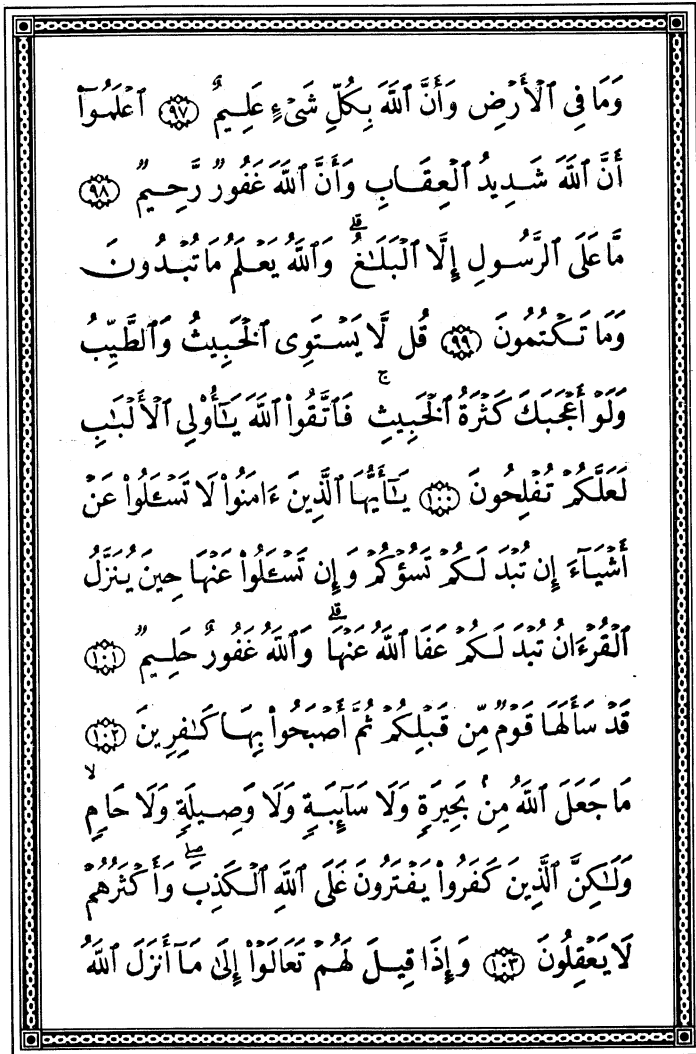 وَمَا فِى ٱلْأَرْضِ وَأَنَّ ٱللَّهَ بِكُلِّ شَىْءٍ عَلِيمٌ ﴿٩٧﴾ ٱعْلَمُوٓا۟
أَنَّ ٱللَّهَ شَدِيدُ ٱلْعِقَابِ وَأَنَّ ٱللَّهَ غَفُورٌ رَّحِيمٌ ﴿٩٨﴾
مَّا عَلَى ٱلرَّسُولِ إِلَّا ٱلْبَلَـٰغُ ۗ وَٱللَّهُ يَعْلَمُ مَا تُبْدُونَ
وَمَا تَكْتُمُونَ ﴿٩٩﴾ قُل لَّا يَسْتَوِى ٱلْخَبِيثُ وَٱلطَّيِّبُ
وَلَوْ أَعْجَبَكَ كَثْرَةُ ٱلْخَبِيثِ ۚ فَٱتَّقُوا۟ ٱللَّهَ يَـٰٓأُو۟لِى ٱلْأَلْبَـٰبِ
لَعَلَّكُمْ تُفْلِحُونَ ﴿١٠٠﴾ يَـٰٓأَيُّهَا ٱلَّذِينَ ءَامَنُوا۟ لَا تَسْـَٔلُوا۟ عَنْ
أَشْيَآءَ إِن تُبْدَ لَكُمْ تَسُؤْكُمْ وَإِن تَسْـَٔلُوا۟ عَنْهَا حِينَ يُنَزَّلُ
ٱلْقُرْءَانُ تُبْدَ لَكُمْ عَفَا ٱللَّهُ عَنْهَا ۗ وَٱللَّهُ غَفُورٌ حَلِيمٌ ﴿١٠١﴾
قَدْ سَأَلَهَا قَوْمٌ مِّن قَبْلِكُمْ ثُمَّ أَصْبَحُوا۟ بِهَا كَـٰفِرِينَ ﴿١٠٢﴾
مَا جَعَلَ ٱللَّهُ مِنۢ بَحِيرَةٍ وَلَا سَآئِبَةٍ وَلَا وَصِيلَةٍ وَلَا حَامٍ ۙ
وَلَـٰكِنَّ ٱلَّذِينَ كَفَرُوا۟ يَفْتَرُونَ عَلَى ٱللَّهِ ٱلْكَذِبَ ۖ وَأَكْثَرُهُمْ
لَا يَعْقِلُونَ ﴿١٠٣﴾ وَإِذَا قِيلَ لَهُمْ تَعَالَوْا۟ إِلَىٰ مَآ أَنزَلَ ٱللَّهُ